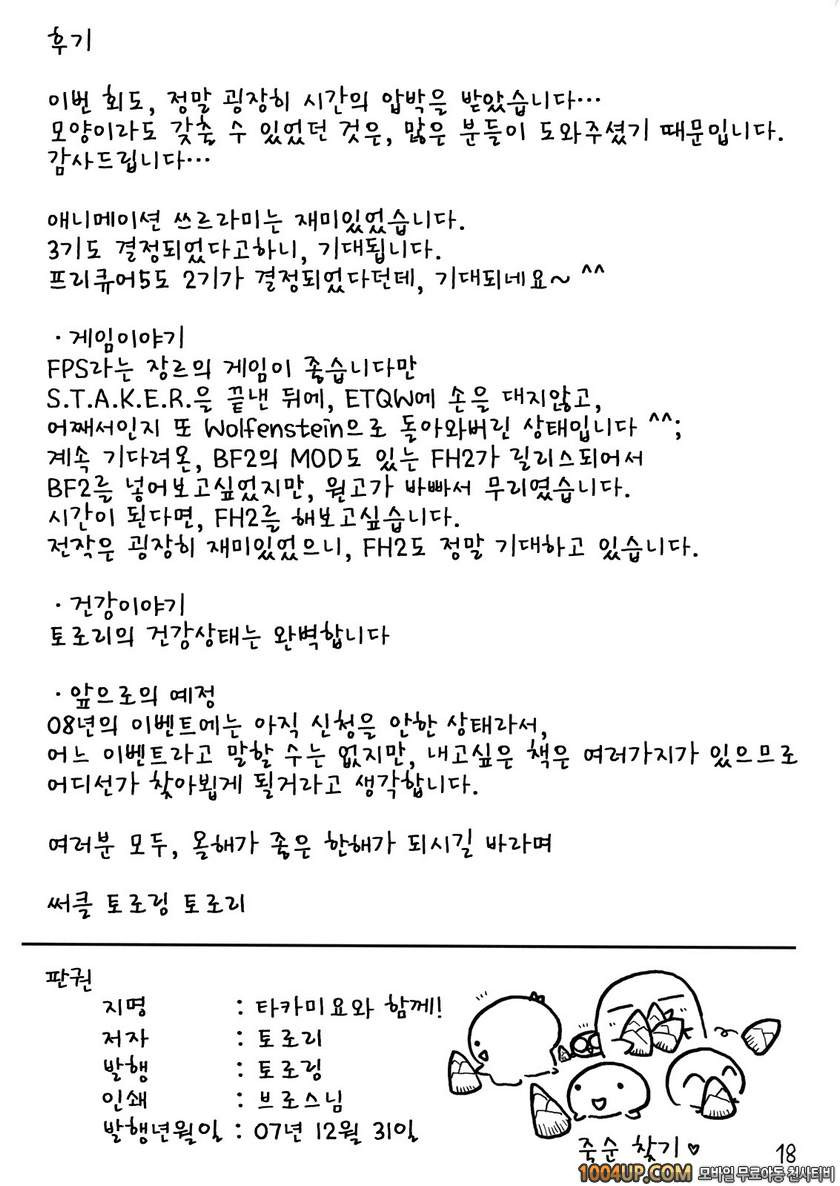 후기
이번 회도, 정말 굉장히 시간의 압박을 받았습니다…
모양이라도 갖출 수 있었던 것은, 많은 분들이 도와주셨기 때문입니다.
감사드립니다…
애니메이션 쓰르라미는 재미있었습니다.
3기도 결정되었다고하니, 기대됩니다.
프리큐어5도 2기가 결정되었다던데, 기대되네요~ ^^
·게임이야기
FPS라는 장르의 게임이 좋습니다만
S.T.A.K.E.R.을 끝낸 뒤에, ETQW에 손을 대지않고,
어째서인지 또 Wolfenstein으로 돌아와버린 상태입니다 ^^;
계속 기다려온, BF2의 MOD도 있는 FH2가 릴리스되어서
BF2를 넣어보고싶었지만, 원고가 바빠서 무리였습니다.
시간이 된다면, FH2를 해보고싶습니다.
전작은 굉장히 재미있었으니, FH2도 정말 기대하고 있습니다.
·건강이야기
토로리의 건강상태는 완벽합니다
·앞으로의 예정
08년의 이벤트에는 아직 신청을 안한 상태라서,
어느 이벤트라고 말할 수는 없지만, 내고싶은 책은 여러가지가 있으므로
어디선가 찾아뵙게 될거라고 생각합니다.
여러분 모두, 올해가 좋은 한해가 되시길 바라며
써클 토로링 토로리
판권
지명 : 타카미요와 함께!
저자 : 토로리
발행 : 토로링
인쇄 : 브로스님
발행년월일 : 07년 12월 31일
죽순 찾기♥
18
1004UP.COM 모바일 무료야동 천사티비